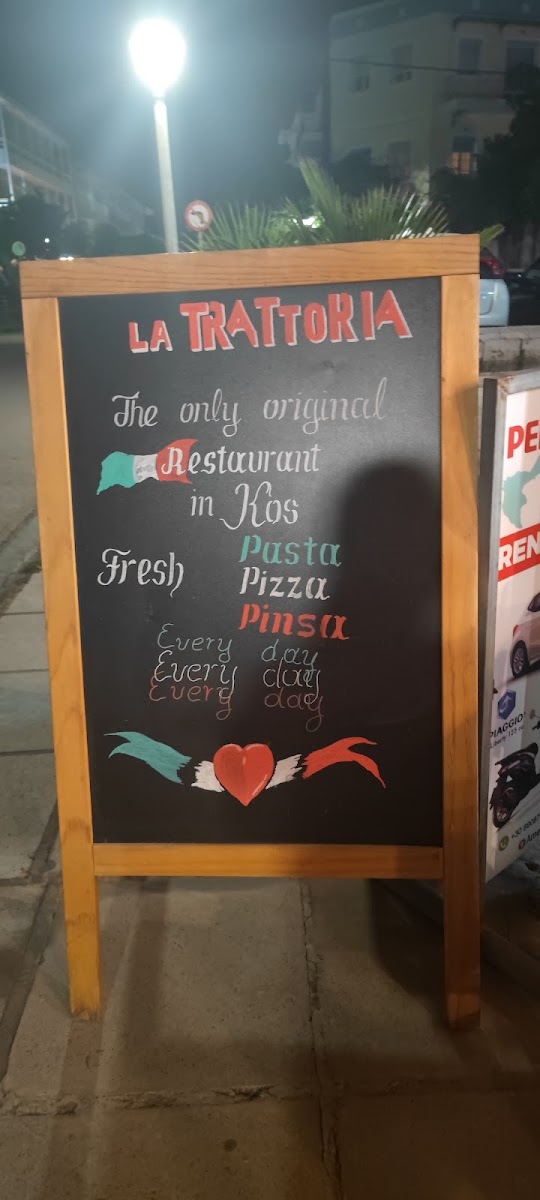 LA TRATTORIA
The only original
Restaurant
in Kos
Fresh
Pasta
Pizza
Pinsa
Every day
Every day
Every day
PIAGGIO